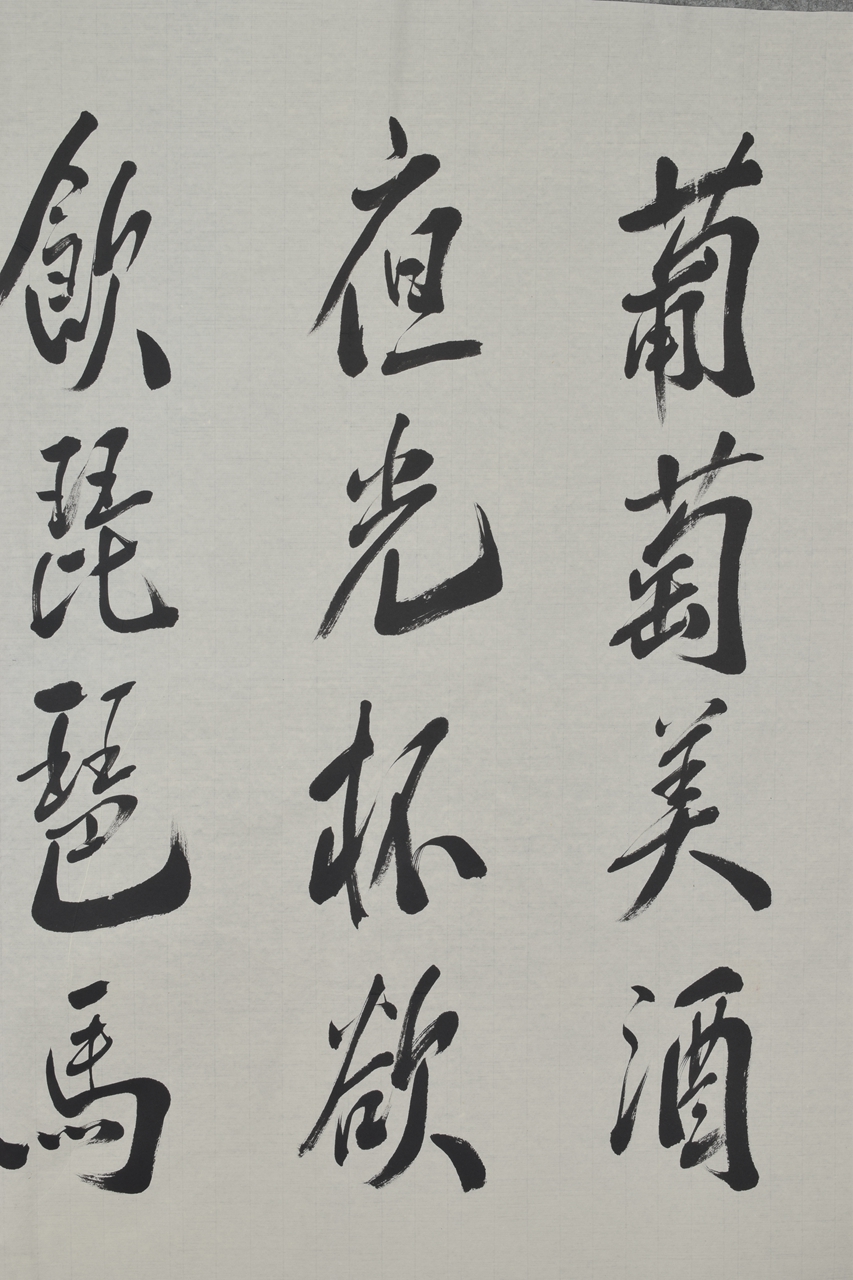 葡萄美酒
夜光杯欲
飲琵琶馬